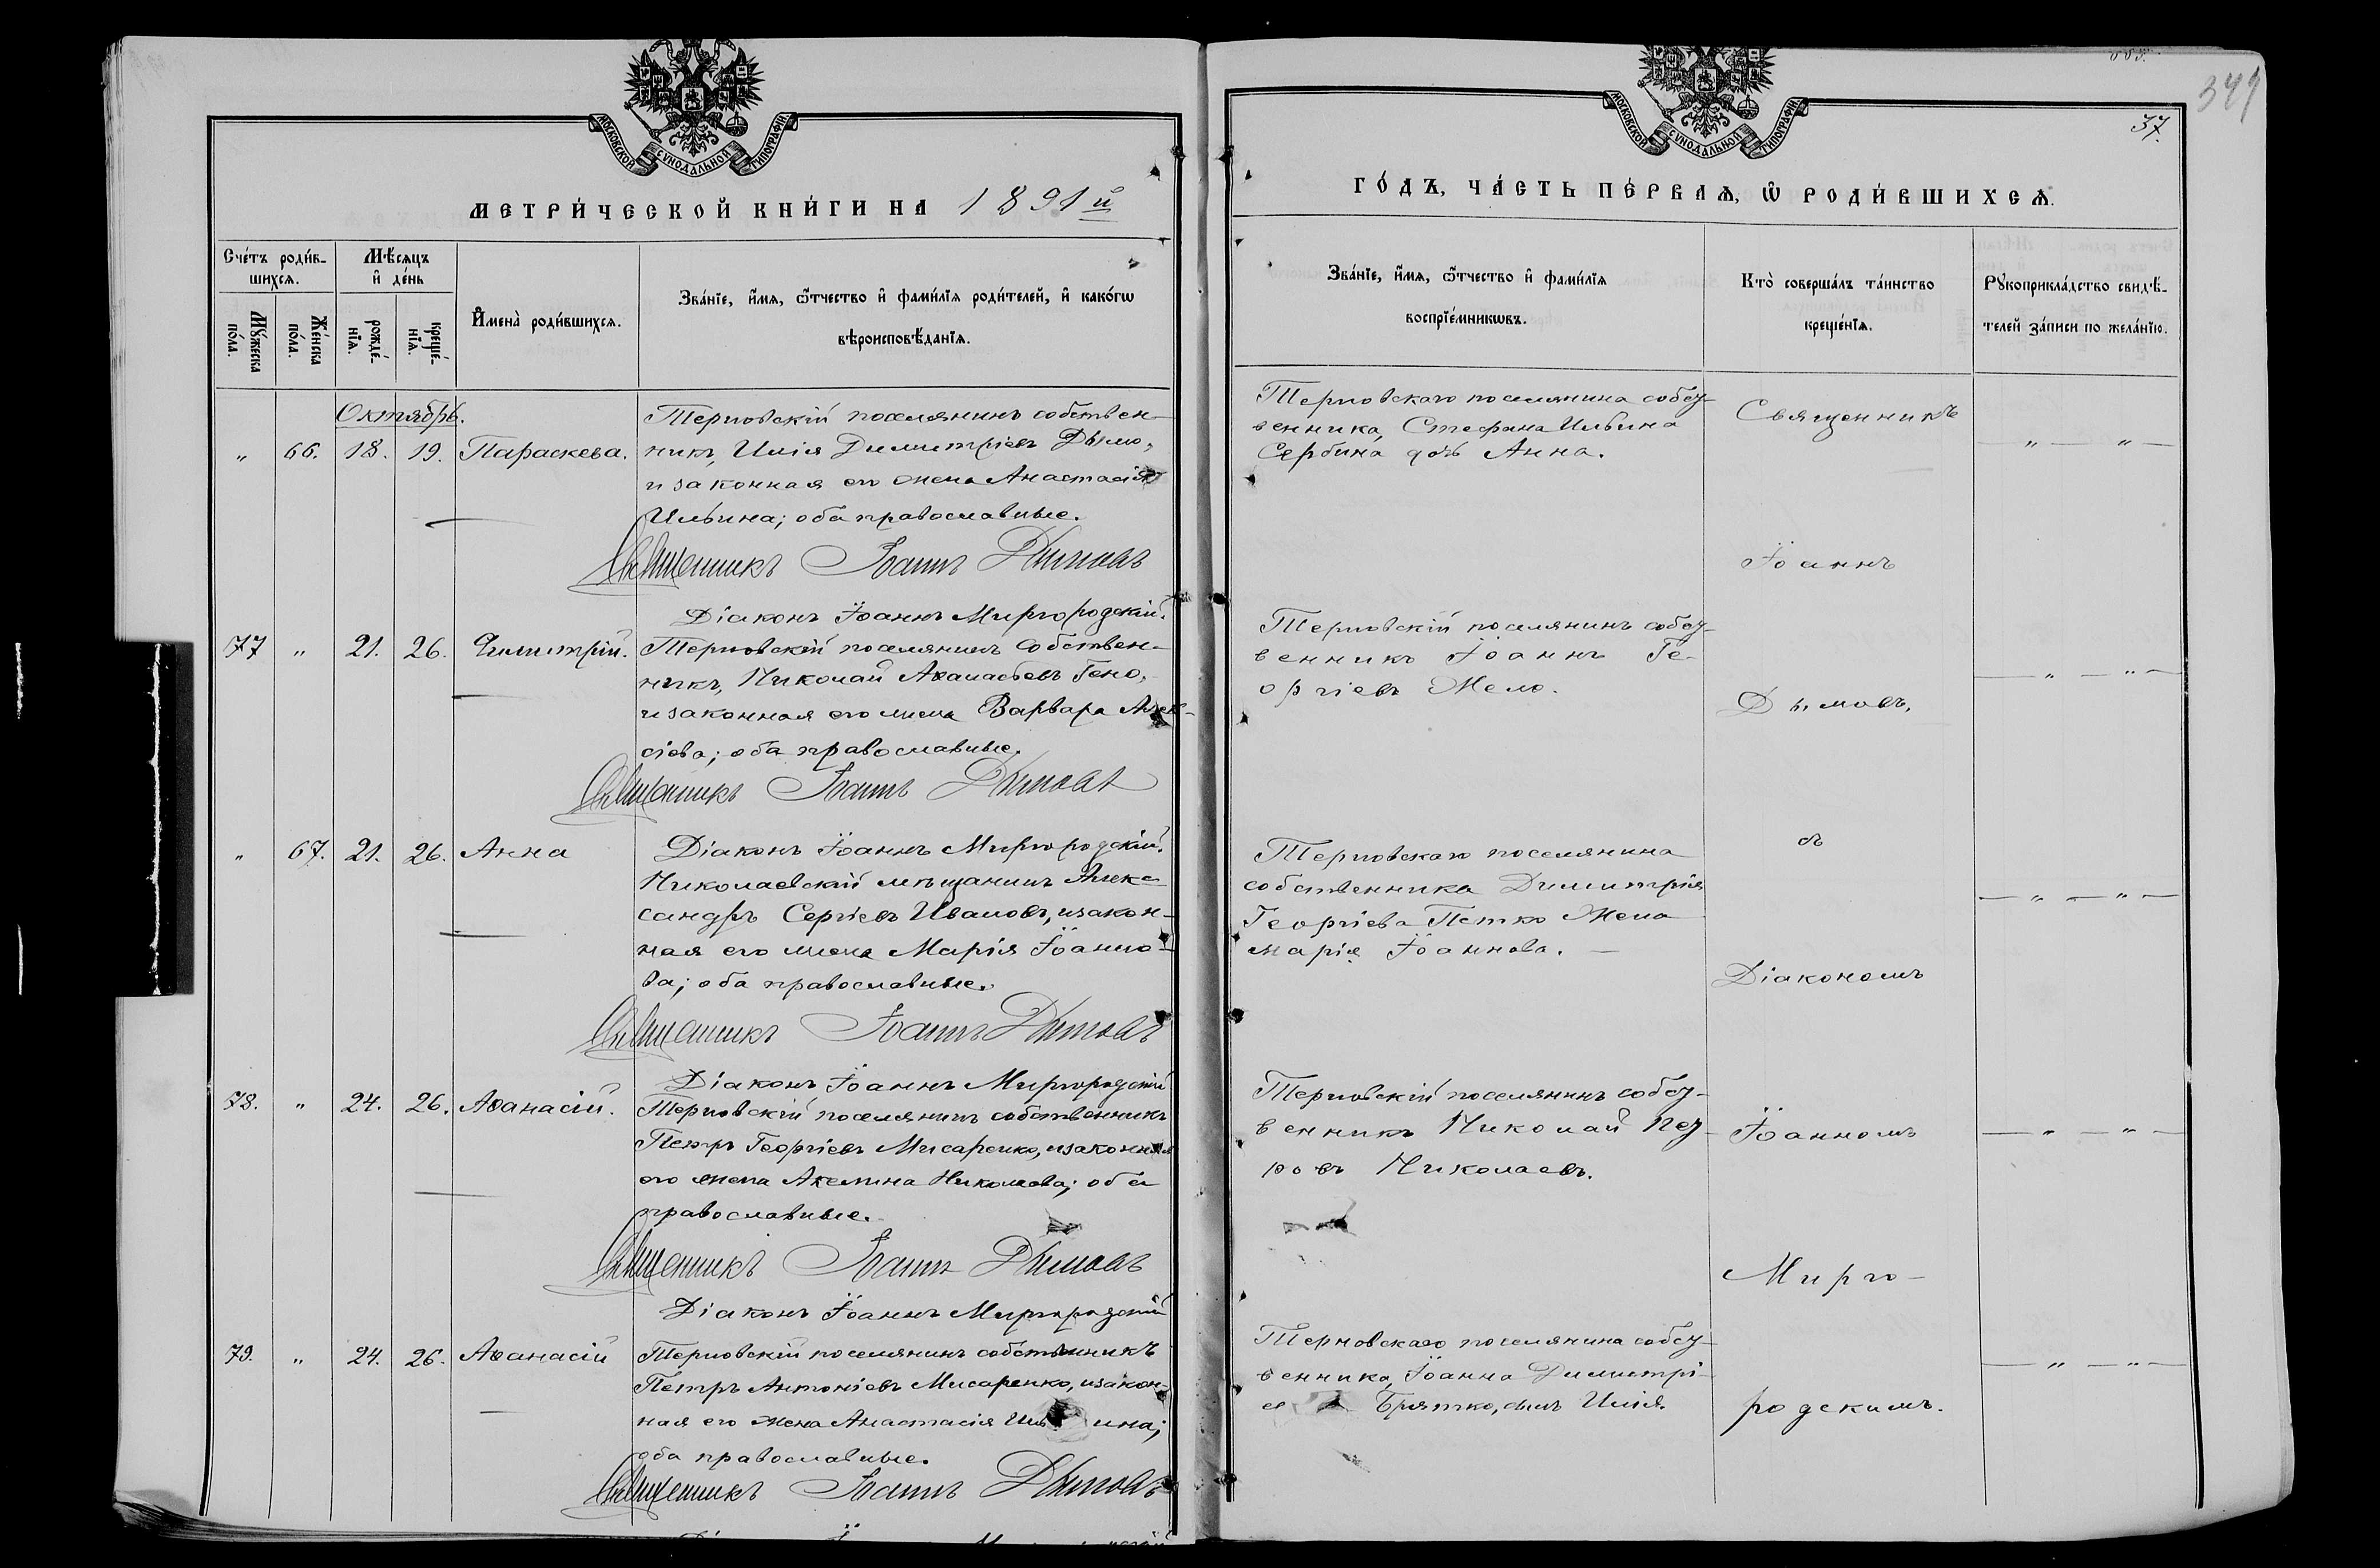 МОСКОВСКОЙ СѴНОДАЛЬНОЙ ТИПОГРАФІИ
МЕТРИ́ЧЕСКОЙ КНИ́ГИ НА 1891й
Сче́тъ роди́в-
шихсѧ.
Мѣ́сѧцъ
и҆ де́нь
Мꙋ́жеска
по́ла.
Же́нска
по́ла.
рожде́-
нїѧ.
креще́-
нїѧ.
И҆мена̀ роди́вшихсѧ.
Зва́нїе, и҆́мѧ, ѻ҆́тчество и҆ фами́лїѧ роди́телей, и҆ како́гѡ
вѣроисповѣ́данїѧ.
Октябрь.
" 66. 18. 19. Параскева.
Терновскій поселянинъ собствен-
никъ, Илія Димитріевъ Дымо,
и законная его жена Анастасія
Ильина; оба православные.
Священникъ Іоаннъ Дымовъ
Діаконъ Іоаннъ Миргородскій.
77 " 21. 26. Димитрій.
Терновскій поселянинъ собствен-
никъ, Николай Аѳанасьевъ Гено,
и законная его жена Варвара Алек-
сіева; оба православные.
Священникъ Іоаннъ Дымовъ
Діаконъ Іоаннъ Миргородскій.
" 67. 21. 26. Анна
Николаевскій мѣщанинъ Алек-
сандръ Сергіевъ Ивановъ, и закон-
ная его жена Марія Іоанно-
ва; оба православные.
Священникъ Іоаннъ Дымовъ
Діаконъ Іоаннъ Миргородскій
78. " 24. 26. Аѳанасій.
Терновскій поселянинъ собственникъ
Петръ Георгіевъ Мисаренко, и законная
его жена Акелина Николаева; оба
православные.
Священникъ Іоаннъ Дымовъ
Діаконъ Іоаннъ Миргородскій
79. " 24. 26. Аѳанасій
Терновскій поселянинъ собственникъ
Петръ Антоніевъ Мисаренко, и закон-
ная его жена Анастасія Иль ина;
оба православные.
Священникъ Іоаннъ Дымовъ
349
37.
МОСКОВСКОЙ СѴНОДАЛЬНОЙ ТИПОГРАФІИ
ГО́ДЪ, ЧА́СТЬ ПЕ́РВАѦ, Ѡ҆ РОДИ́ВШИХСѦ.
Зва́нїе, и҆́мѧ, ѻ҆́тчество и҆ фами́лїѧ
воспрїе́мникѡвъ.
Кто̀ соверша́лъ та́инство
креще́нїѧ.
Рꙋкоприкла́дство свидѣ́-
телей за́писи по жела́нїю.
Терновскаго поселянина собст-
венника, Стефана Ильина
Сербина дочь Анна.
Терновскій поселянинъ собст-
венникъ Іоаннъ Ге-
оргіевъ Мело.
Терновскаго поселянина
собственника Димитрія
Георгіева Петко жена
Марія Іоаннова. —
Терновскій поселянинъ собст-
венникъ Николай Пет-
ровъ Николаевъ.
Терновскаго поселянина собст-
венника, Іоанна Димитрі-
ев Брятко, сынъ Илія.
Священникъ
Іоаннъ
Дымовъ,
съ
Діакономъ
Іоанномъ
Мирго-
родскимъ.
— " — " —
— " — " —
— " — " —
— " — " —
— " — " —